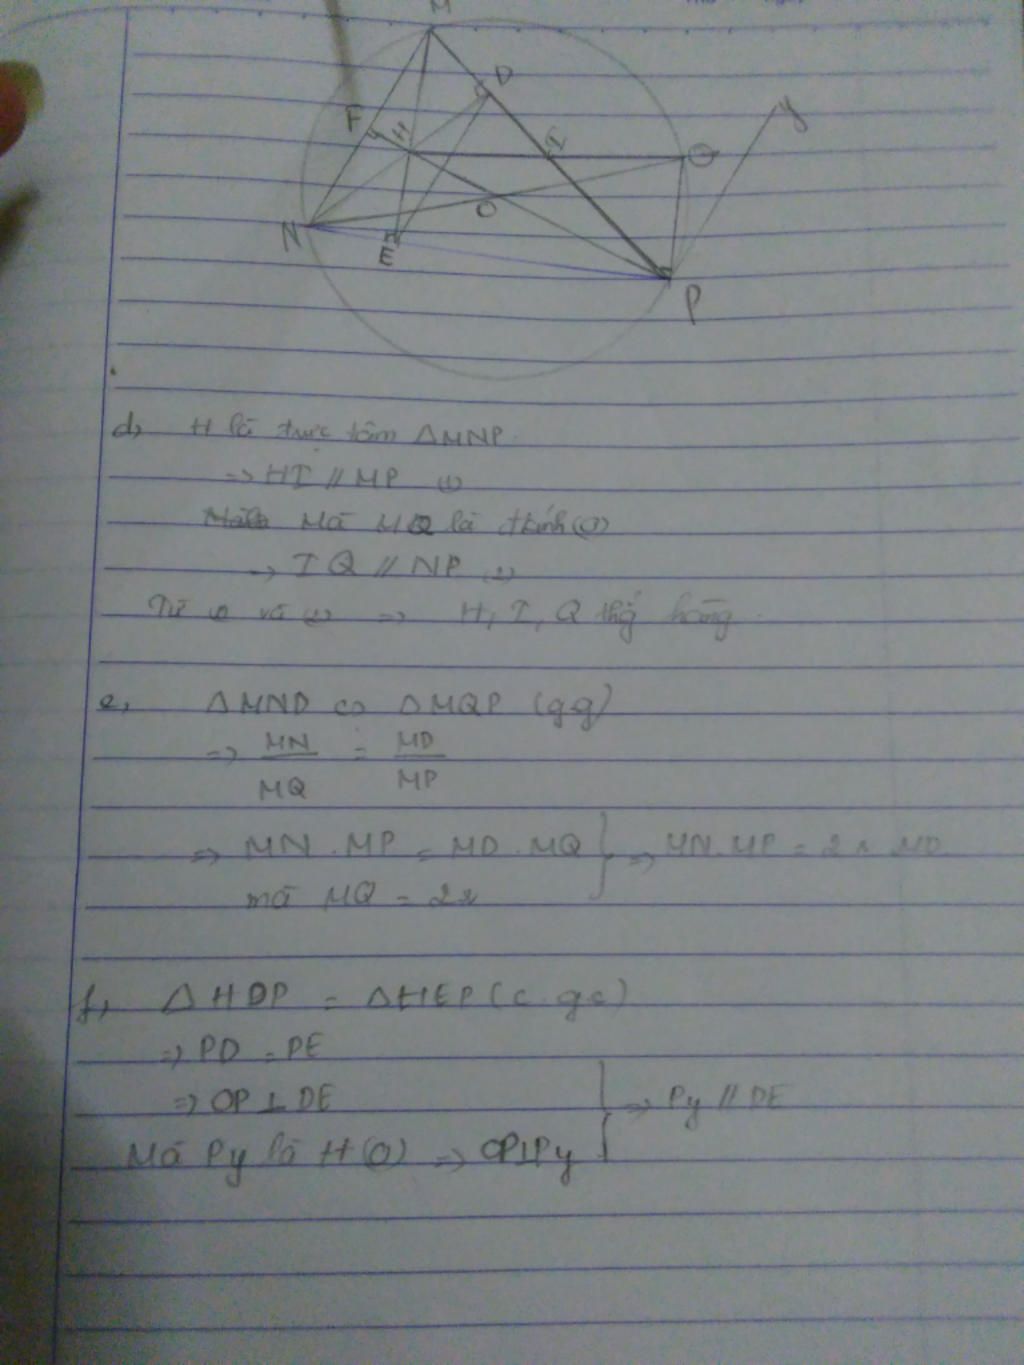 M
D
F
H
I
Q
y
O
N
E
P
d, H là trực tâm △MNP
=> HI // MP (1)
Mà MQ là đkính (O)
=> IQ // NP (2)
Từ (1) và (2) => H, I, Q thẳg hàng.
e, △MND ∽ △MQP (gg)
=> MN/MQ = MD/MP
=> MN.MP = MD.MQ } => MN.MP = 2r.MD
mà MQ = 2r
f, △HDP = △HEP (c.g.c)
=> PD = PE
=> OP⊥DE } => Py // DE
Mà Py là tt (O) => OP⊥Py